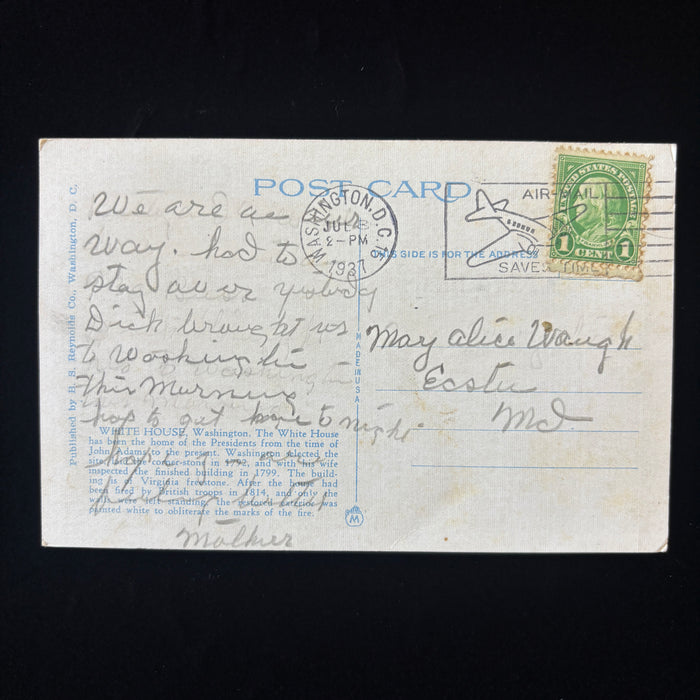 POST CARD
THIS SIDE IS FOR THE ADDRESS
WASHINGTON, D.C.
JUL
2-PM
1937
AIR MAIL
SAVES TIME
UNITED STATES POSTAGE
1 CENT 1
We are on
way. had to
stay over
Dick brought us
to Washington
This Morning
hop to get home to night.
Mother
Mary Alice Waugh
Md
MADE IN USA
Published by B. S. Reynolds Co., Washington, D. C.
WHITE HOUSE, Washington. The White House
has been the home of the Presidents from the time of
John Adams to the present. Washington selected the
site, laid the corner-stone in 1792, and with his wife
inspected the finished building in 1799. The build-
ing is of Virginia freestone. After the house had
been fired by British troops in 1814, and only the
walls were left standing, the restored exterior was
painted white to obliterate the marks of the fire.
M